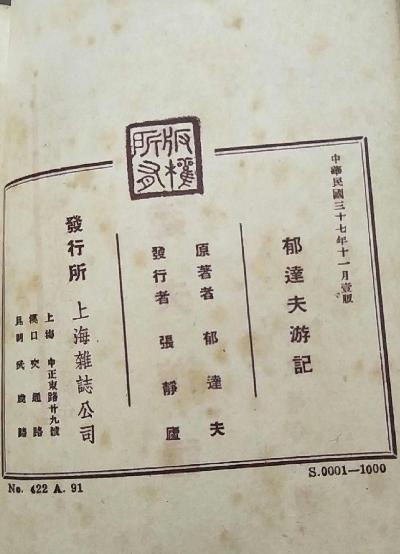 版權所有
中華民國三十七年十一月壹版
郁達夫游記
原著者 郁達夫
發行者 張靜廬
發行所 上海雜誌公司
上海 中正東路廿九號
漢口 交通路
昆明 武成路
S.0001—1000
No. 422 A. 91